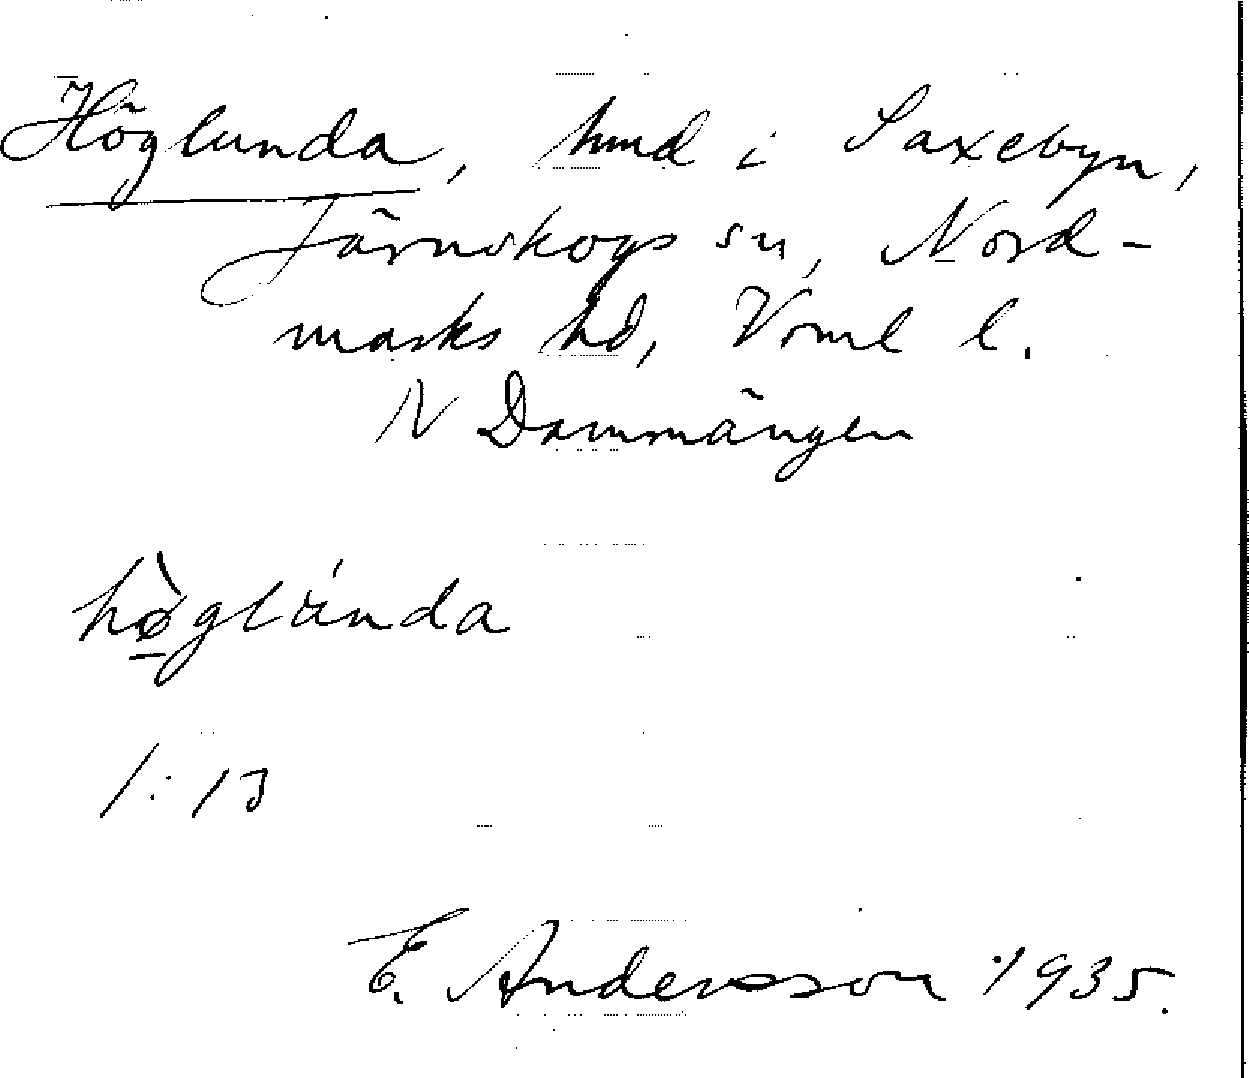 Höglunda, hmd i Saxebyn,
Järnskogs sn, Nord-
marks hd, Vrml l.
N Dammängen
hø̀glúnda
1:13
E. Andersson 1935.